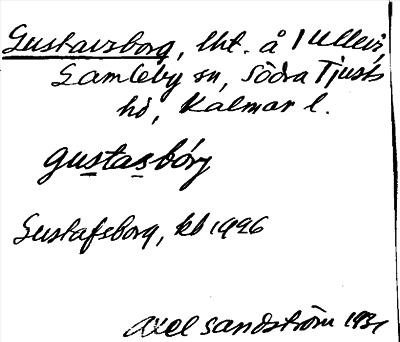 Gustavsborg, lht. å 1 Ullevi,
Gamleby sn, Södra Tjusts
hd, Kalmar l.
gustasbórg
Gustafsborg, kb 1926
Axel Sandström 1931